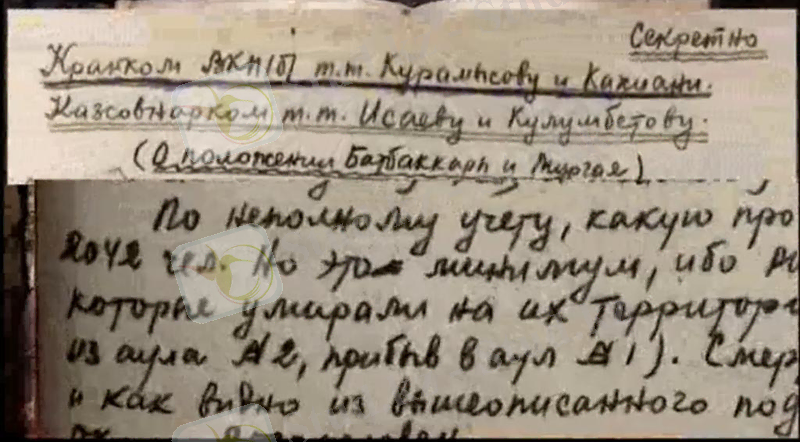 Секретно
Крайком ВКП/б/ т.т. Курамысову и Кахиани.
Казсовнарком т.т. Исаеву и Кулумбетову.
(О положении Батбаккары и Тургая)
По неполному учету, какую про
2042 чел. Но это минимум, ибо
которые умирали на их территор
из аула №2, прибыв в аул №1). Смер
и как видно из вышеописанного под